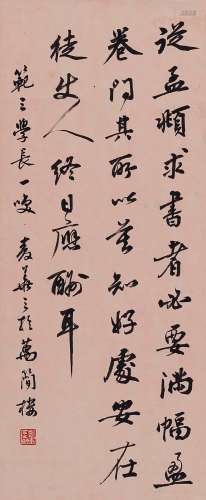 從孟頫求書者必要滿幅盈
卷問其所以莫知好處安在
徒使人終日應酬耳
範三學長一 麥華三於萬簡樓